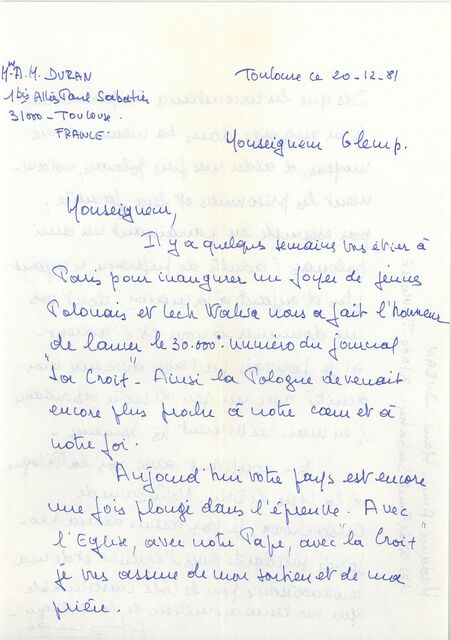 Mme A.M. DURAN
1 bis Allées Paul Sabatier
31000 - TOULOUSE.
FRANCE.
Toulouse ce 20-12-81
Monseigneur Glemp.
Monseigneur,
Il y a quelques semaines vous étiez à
Paris pour inaugurer un foyer de jeunes
Polonais et Lech Walesa nous a fait l'honneur
de lancer le 30.000e numéro du journal
"La Croix" - Ainsi la Pologne devenait
encore plus proche à notre cœur et à
notre foi.
Aujourd'hui votre pays est encore
une fois plongé dans l'épreuve. Avec
l'Eglise, avec notre Pape, avec "la Croix"
je vous assure de mon soutien et de ma
prière.